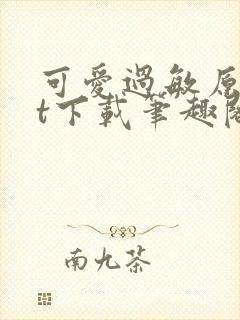 可愛過敏原
t下載筆趣閣
南九茶